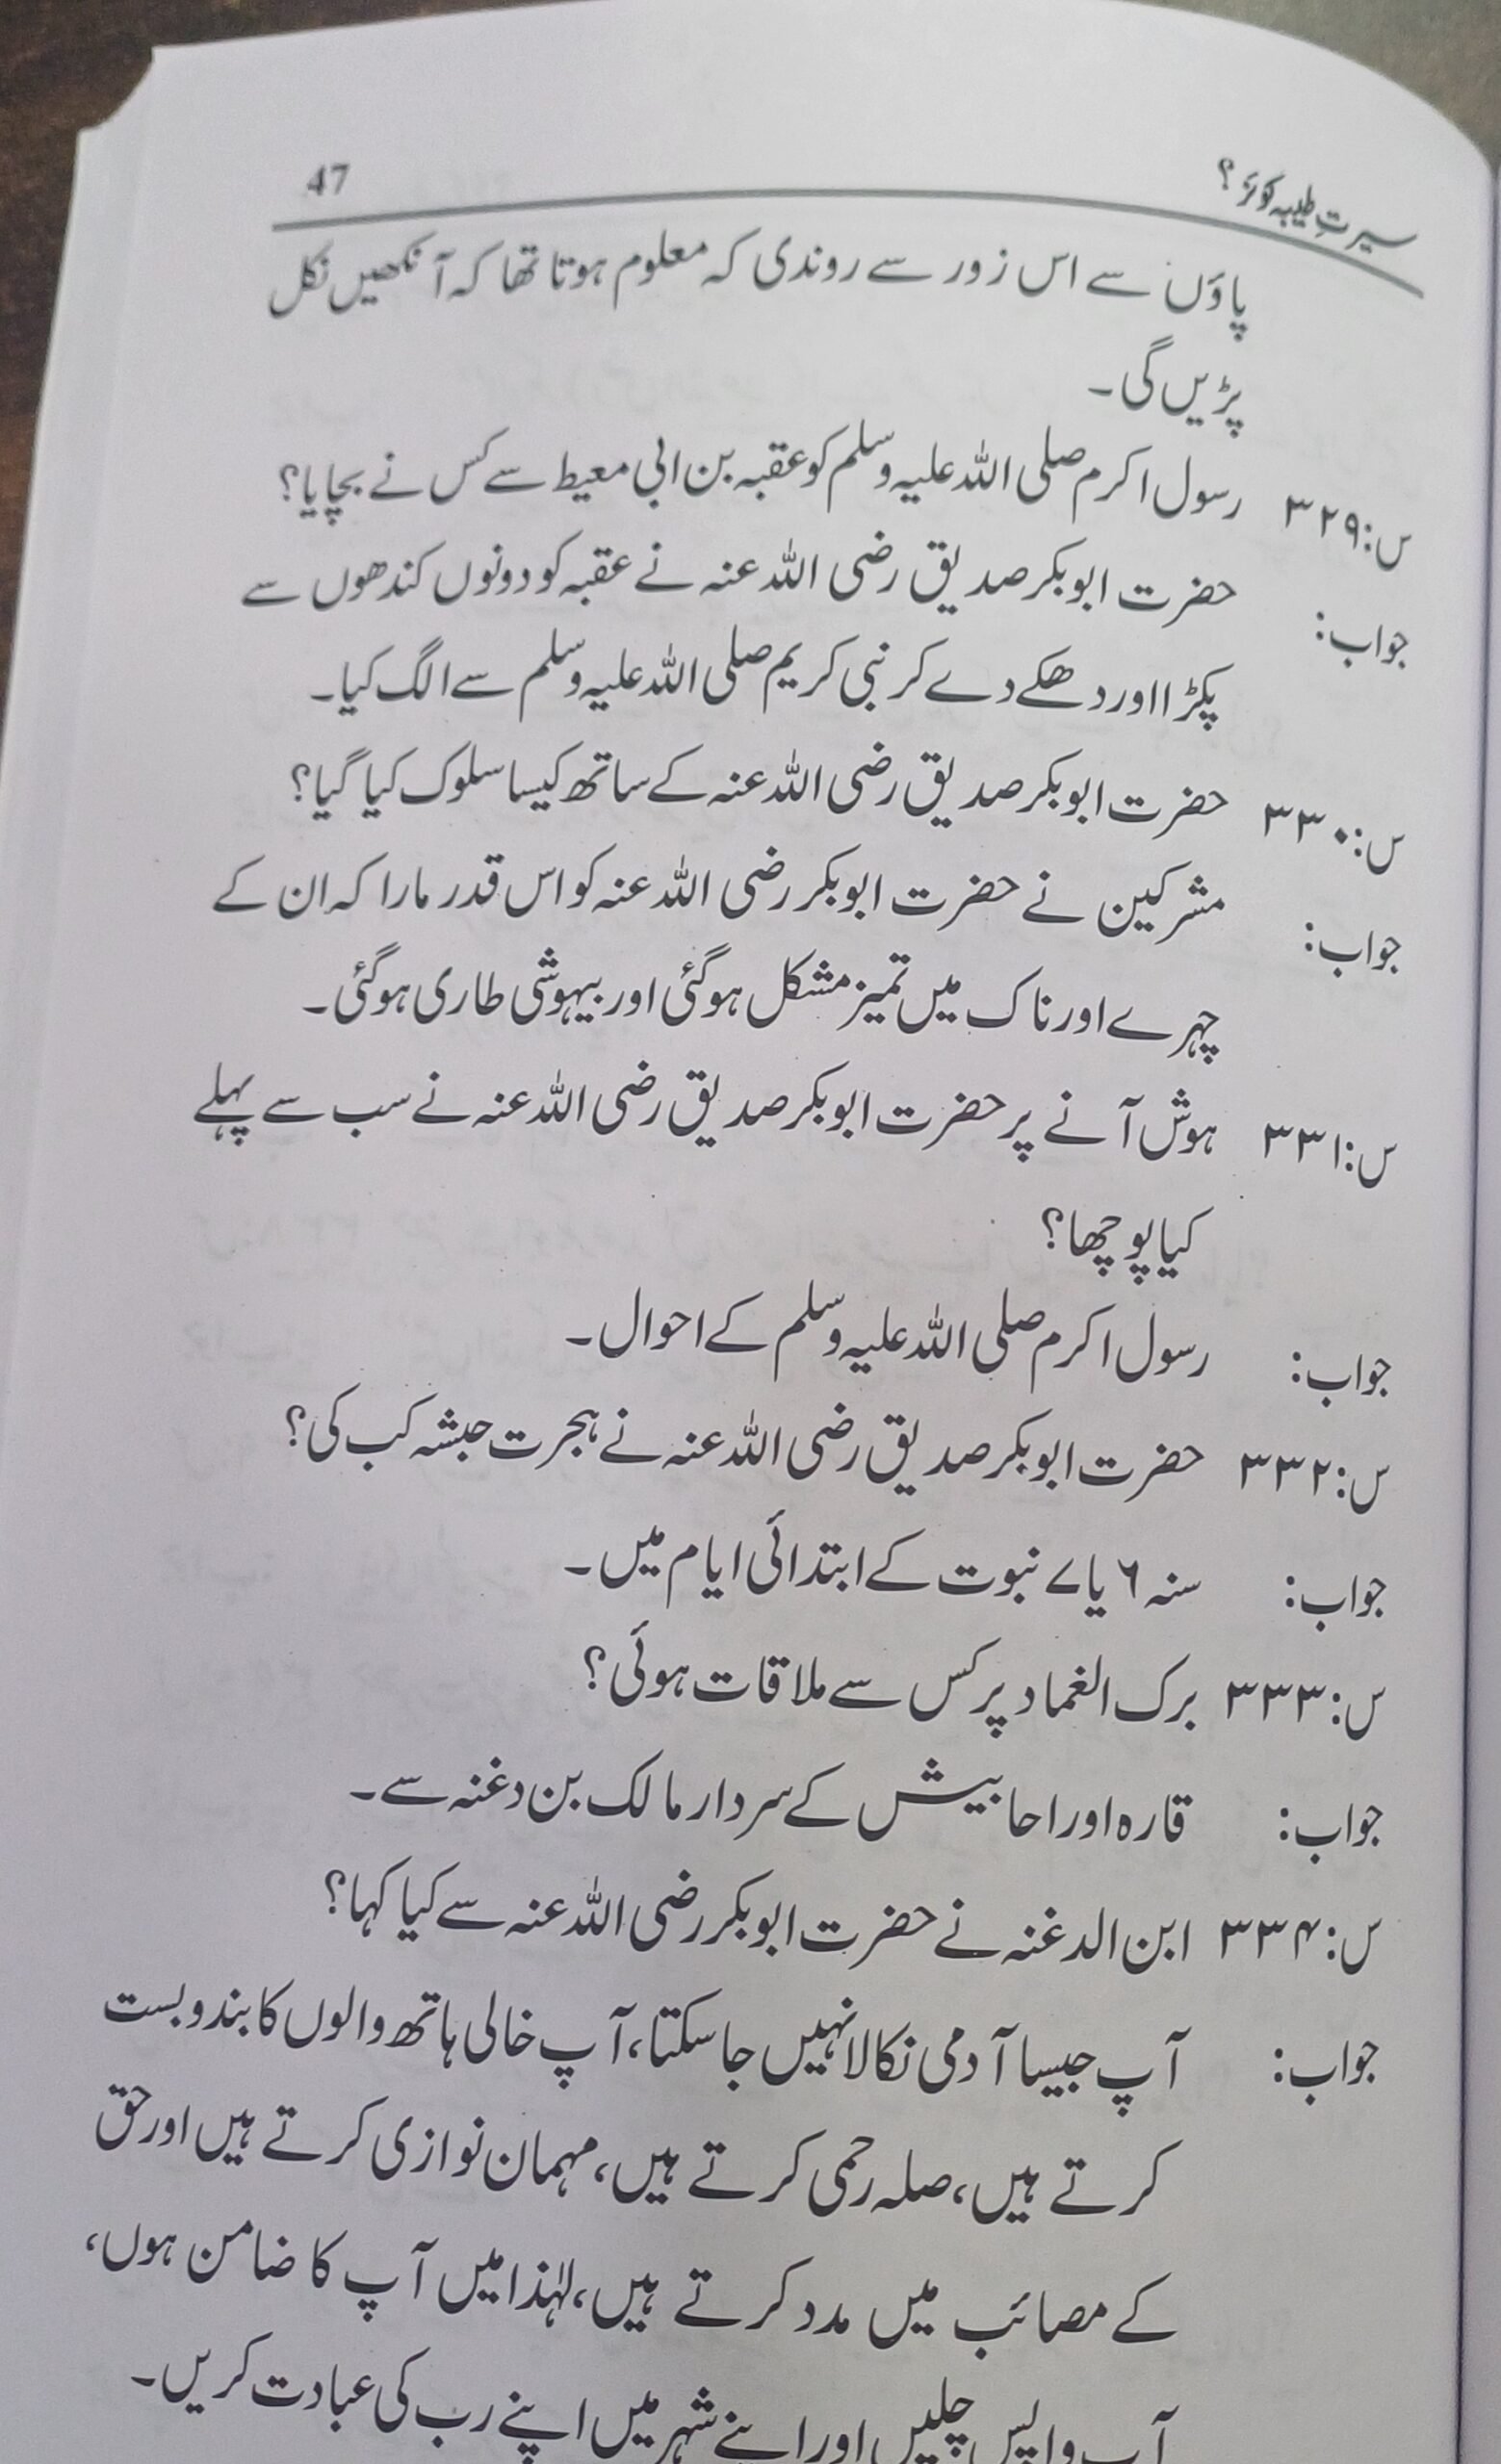 سیرتِ طیبہ کوئز؟
47
پاؤں سے اس زور سے روندی کہ معلوم ہوتا تھا کہ آنکھیں نکل
پڑیں گی۔
س:۳۲۹ رسول اکرم صلی اللہ علیہ وسلم کو عقبہ بن ابی معیط سے کس نے بچایا؟
جواب: حضرت ابوبکر صدیق رضی اللہ عنہ نے عقبہ کو دونوں کندھوں سے
پکڑا اور دھکے دے کر نبی کریم صلی اللہ علیہ وسلم سے الگ کیا۔
س:۳۳۰ حضرت ابوبکر صدیق رضی اللہ عنہ کے ساتھ کیسا سلوک کیا گیا؟
جواب: مشرکین نے حضرت ابوبکر رضی اللہ عنہ کو اس قدر مارا کہ ان کے
چہرے اور ناک میں تمیز مشکل ہوگئی اور بیہوشی طاری ہوگئی۔
س:۳۳۱ ہوش آنے پر حضرت ابوبکر صدیق رضی اللہ عنہ نے سب سے پہلے
کیا پوچھا؟
جواب: رسول اکرم صلی اللہ علیہ وسلم کے احوال۔
س:۳۳۲ حضرت ابوبکر صدیق رضی اللہ عنہ نے ہجرت حبشہ کب کی؟
جواب: سنہ ۶ یا ۷ نبوت کے ابتدائی ایام میں۔
س:۳۳۳ برک الغماد پر کس سے ملاقات ہوئی؟
جواب: قارہ اور احابیش کے سردار مالک بن دغنہ سے۔
س:۳۳۴ ابن الدغنہ نے حضرت ابوبکر رضی اللہ عنہ سے کیا کہا؟
جواب: آپ جیسا آدمی نکالا نہیں جاسکتا، آپ خالی ہاتھ والوں کا بندوبست
کرتے ہیں، صلہ رحمی کرتے ہیں، مہمان نوازی کرتے ہیں اور حق
کے مصائب میں مدد کرتے ہیں، لہٰذا میں آپ کا ضامن ہوں،
آپ واپس چلیں اور اپنے شہر میں اپنے رب کی عبادت کریں۔